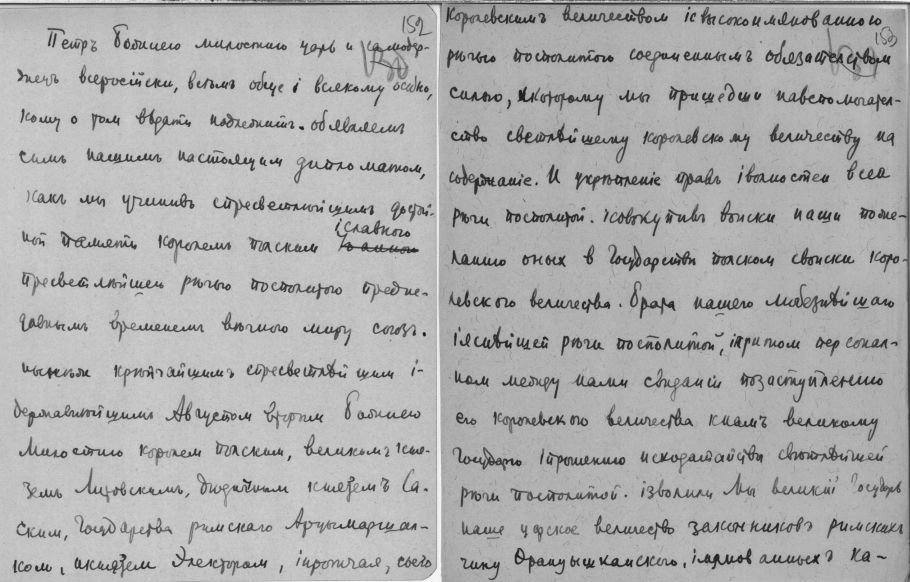 152
Петръ Божиею милостию царь и самодер-
жецъ всеросiйски, всѣмъ обще i всякому особно,
кому о том вѣдати надлежитъ. объявляемъ
симъ нашимъ настоящим дипломатом,
какъ мы учинивъ спресветлѣйшимъ достой-
ной памяти королемъ полским iславного
пресветлѣйшей рѣчью посполитою предне-
давнымъ временемъ вѣчного миру союзъ.
нынѣже крѣпчайшимъ спресветлѣйшим i-
державнѣйшимъ Августом вторым Божиею
Милостию королем полским, великомъ кня-
земъ Литовскимъ, дѣдичным князѣмъ Са-
ским, Государства римскаго Арцымаршал-
ком, iкнязѣм Электором, iпротчая, своего
153
королевскимъ величеством iсвысокоимянованною
рѣчью посполитою соединеннымъ обязателством
силою, пкоторому мы пришедши навспомогател-
ство светлѣйшему королевскому величеству на
содержанiе. И укрѣпленiе правъ iволностей всеа
рѣчи посполитой. iсовокупивъ воиски наши поже-
ланию оных в Государстве полском своиски коро-
левского величества. брата нашего любезнѣйшаго
iяснѣйшей рѣчи посполитой, iпритом персонал-
ном между нами свиданiи позаступлению
его королевского величества кнамъ великому
Государю iпрошению исходатайства свѣтлѣйшей
рѣчи посполитой. iзволили Мы великiй Государь
наше царское величество законниковъ римских
чину Францышканского, iимянованныхъ ка-